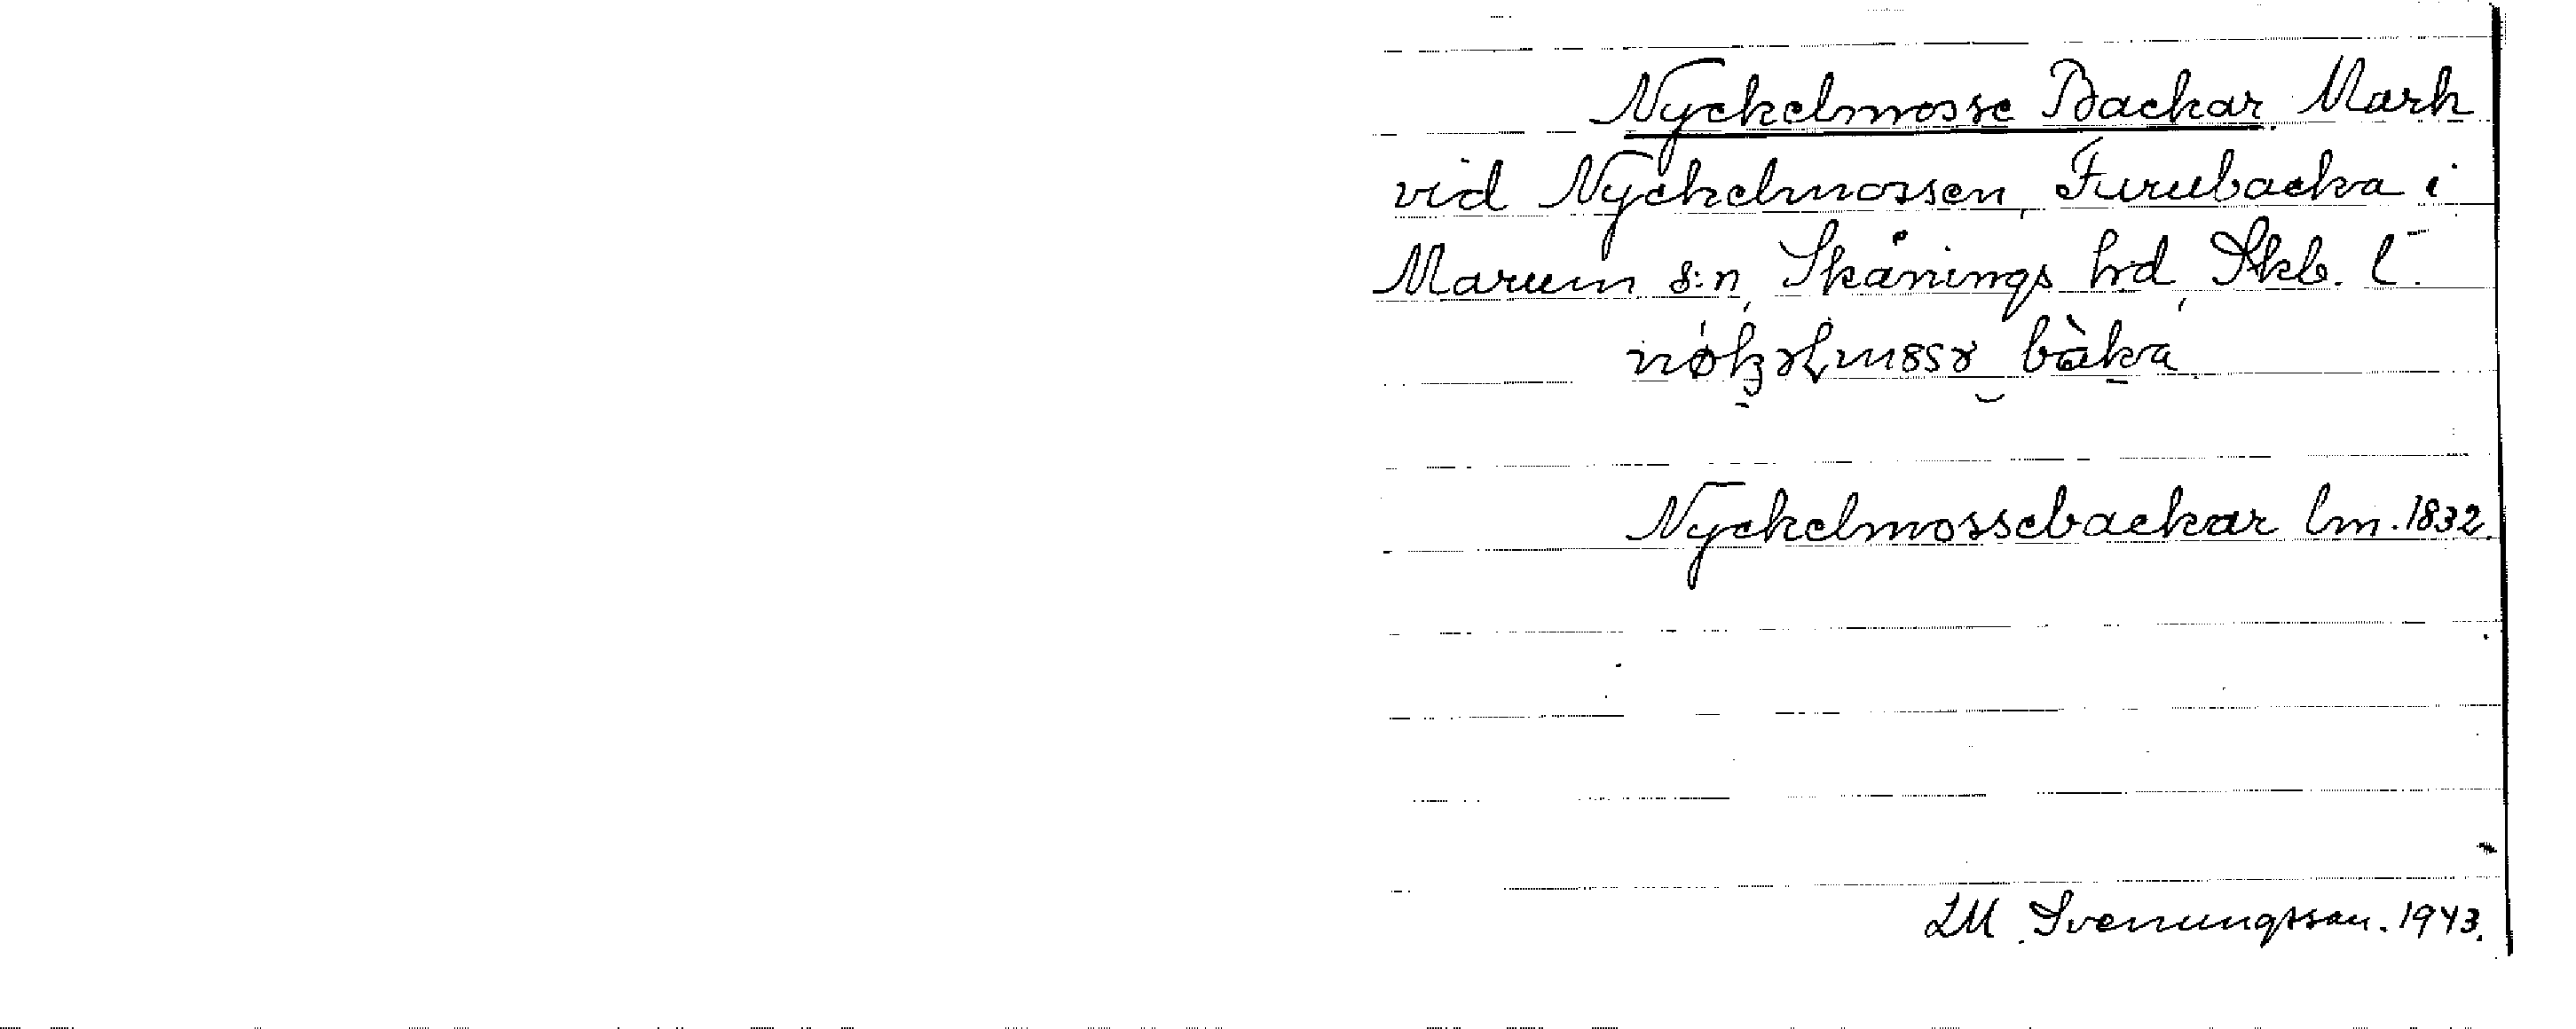 Nyckelmosse Backar. Mark
vid Nyckelmossen, Furubacka i
Marum s:n, Skånings hd, Skb. l.
bàka
Nyckelmossebackar lm. 1832.
LM. Svenungsson. 1943.